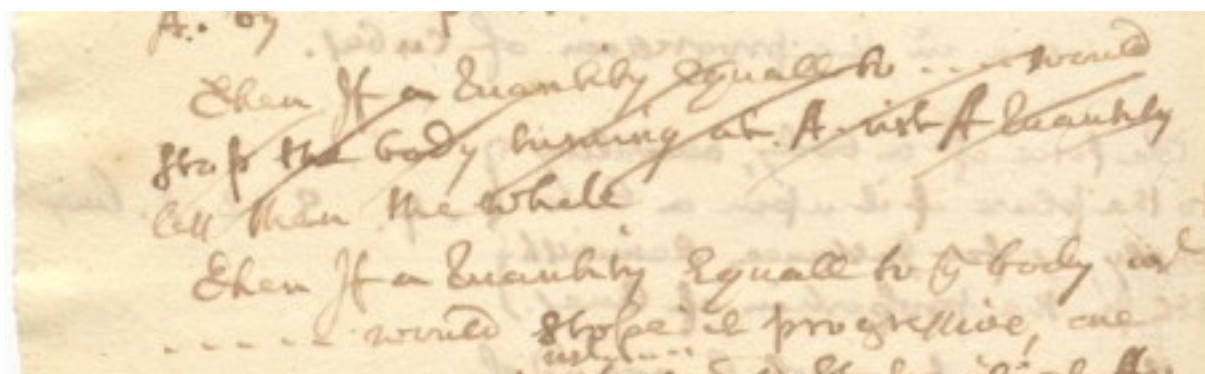 A. by
Then If a Quantity Equall to .... would
stop the body turning at A. wth A Quantity
less then the whole
Then If a Quantity Equall to ye body wth
...... would stope it progressive, one